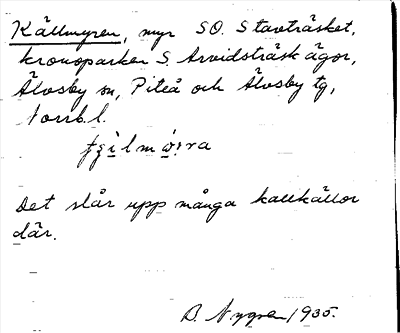 Källmyren, myr SO. Stavträsket,
kronoparken S. Arvidsträsk ägor,
Älvsby sn, Piteå och Älvsby tg,
Norrb.l.
Det slår upp många kallkällor
där.
B. Nygren 1935.